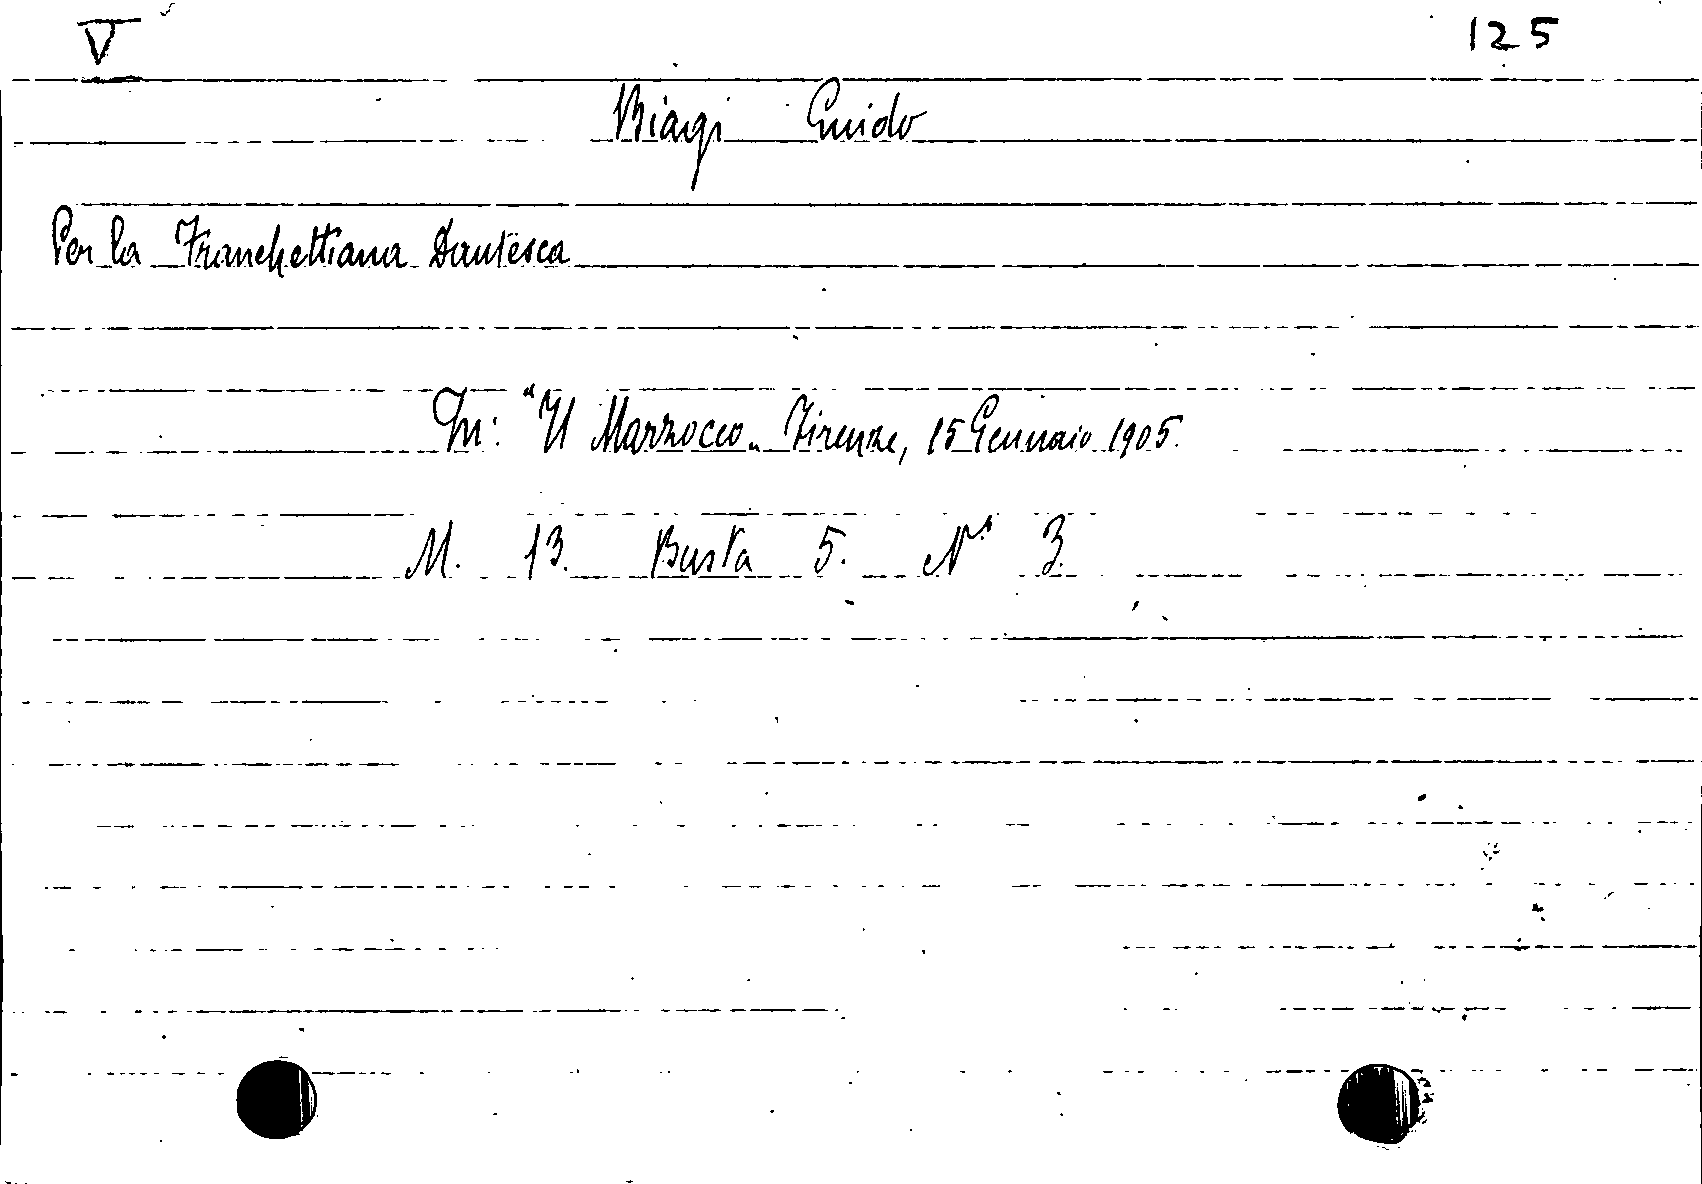 V 125
Biagi Guido
Per la Franchettiana Dantesca
In: "Il Marzocco„ Firenze, 15 Gennaio 1905.
M. 13. Busta 5. N° 3.